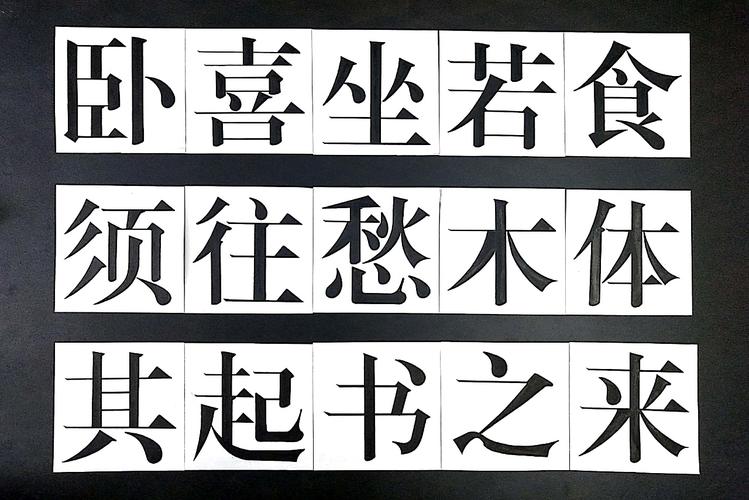 卧喜坐若食
须往愁木体
共起书之来